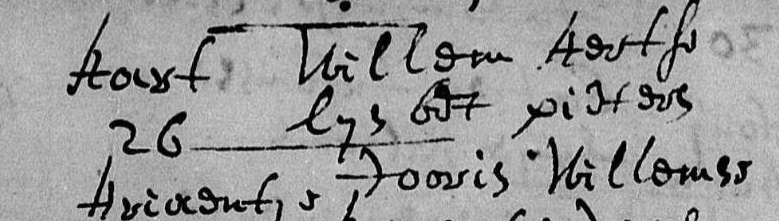 Aart Willem Aertss
26 lysbet pieters
Ariaentys Jooris Willemss